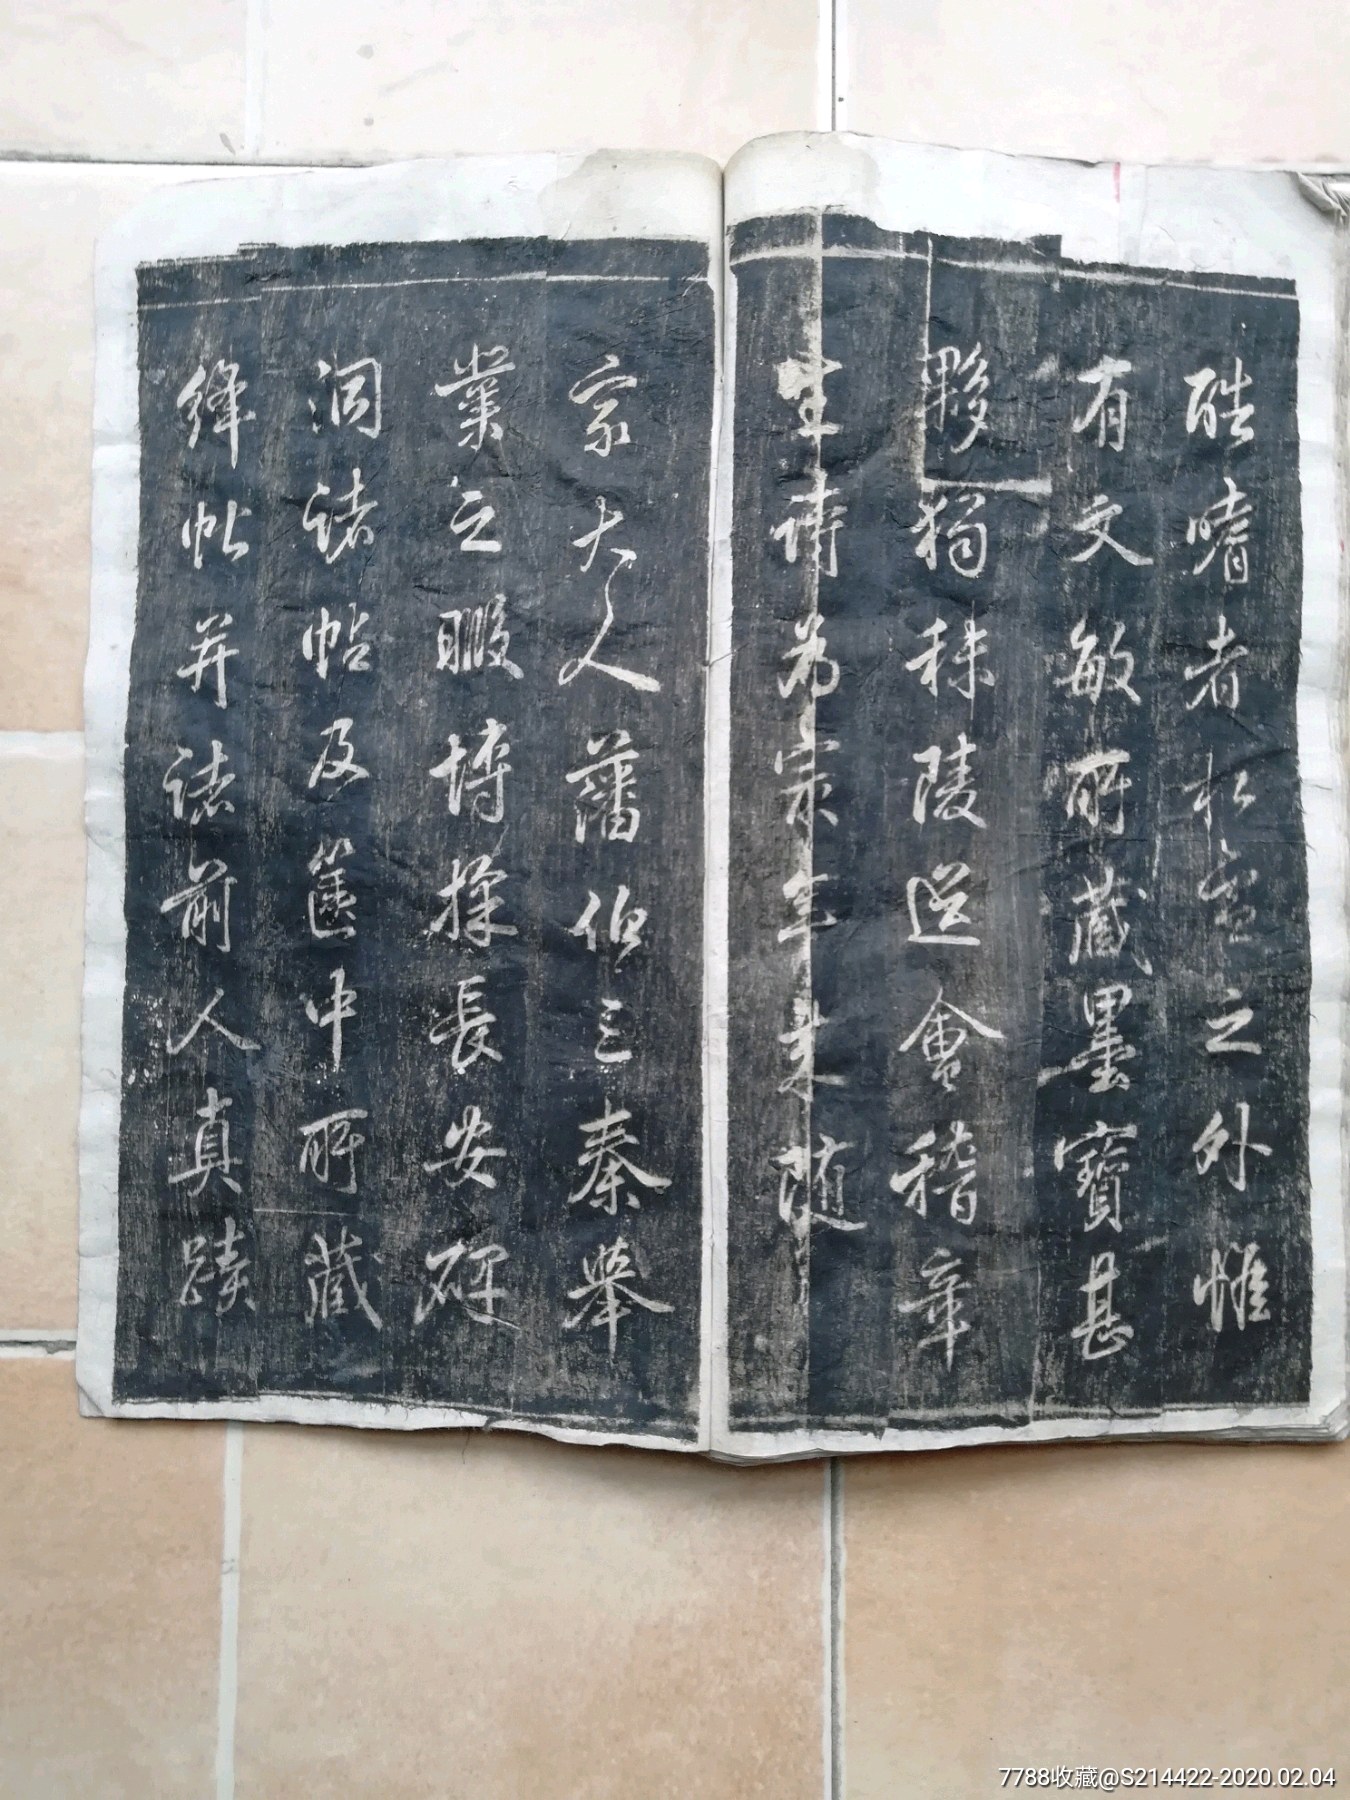 酷嗜者松雪之外惟
有文敏所藏墨寶甚
夥獨秣陵送會稽章
生詩為最年來隨
家大人藩伯三秦舉
業之暇博採長安碑
洞諸帖及篋中所藏
絳帖并諸前人真蹟
7788收藏@S214422-2020.02.04